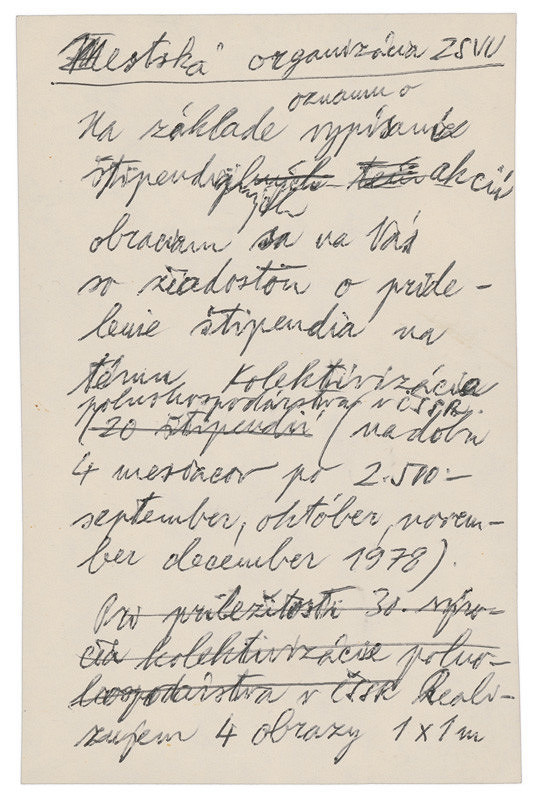 Mestská organizácia ZSVU
oznamu o
Na základe vypísanie
štipendijných akcií
obraciam sa na Vás
so žiadosťou o pride-
lenie štipendia na
tému Kolektivizácia
poľnohospodárstva v ČSSR
(20 štipendií (na dobu
4 mesiacov po 2.500.-
september, október, novem-
ber december 1978).
Pri príležitosti 30. výro-
čia kolektivizácie poľno-
hospodárstva v ČSSR Reali-
zujem 4 obrazy 1x1m